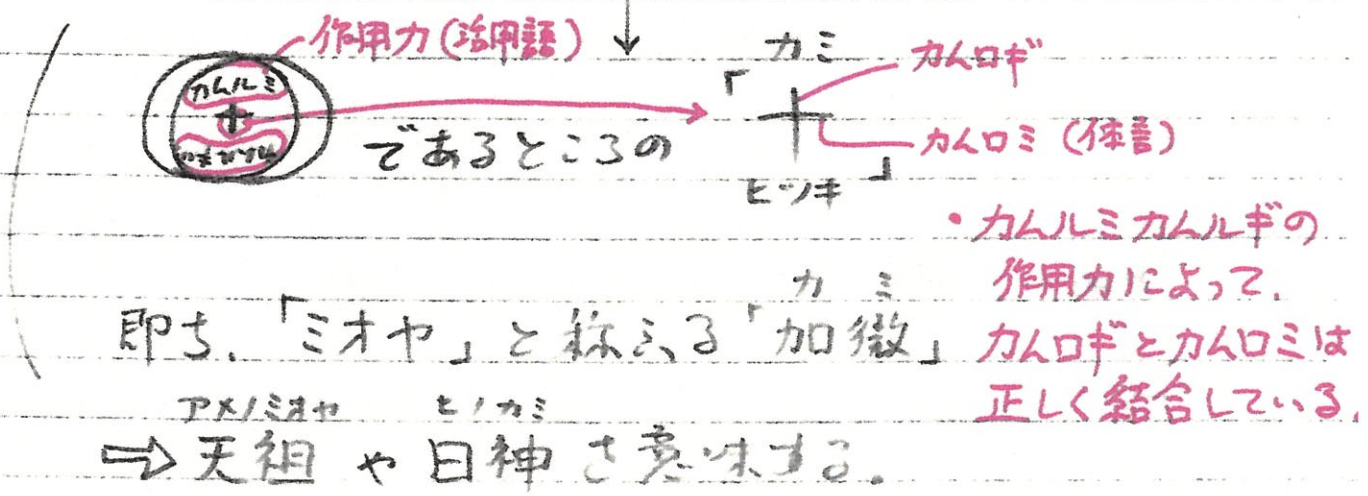 作用力(活用語)
カムルミ
カムルギ
であるところの
カミ
「十」
ヒツキ
カムロギ
カムロミ(体言)
・カムルミカムルギの
作用力によって、
カムロギとカムロミは
正しく結合している。
カミ
即ち、「ミオヤ」と称える「加微」
アメノミオヤ ヒノカミ
⇨天祖や日神を意味する。